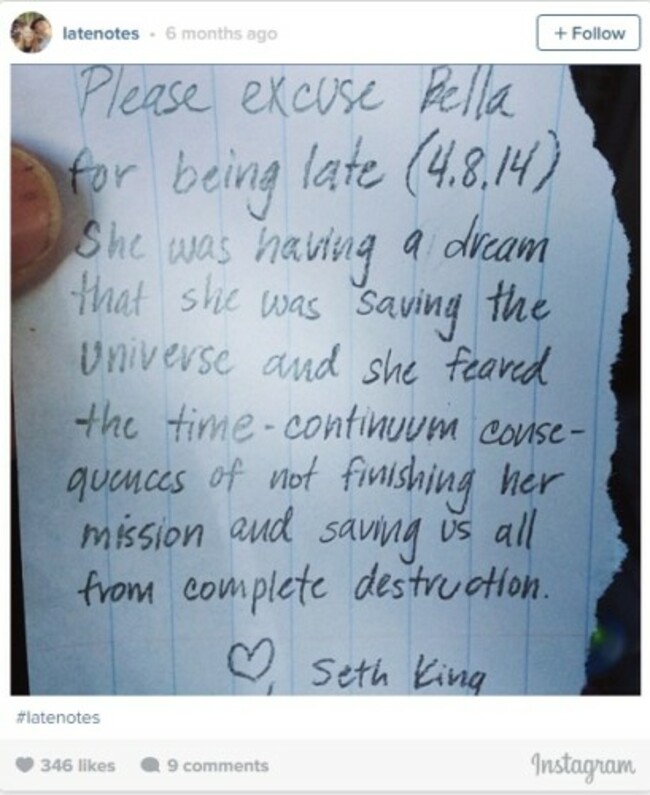 latenotes • 6 months ago
+ Follow
Please excuse Bella
for being late (4.8.14)
She was having a dream
that she was saving the
Universe and she feared
the time-continuum conse-
quences of not finishing her
mission and saving us all
from complete destruction.
♡, Seth King
#latenotes
346 likes 9 comments
Instagram